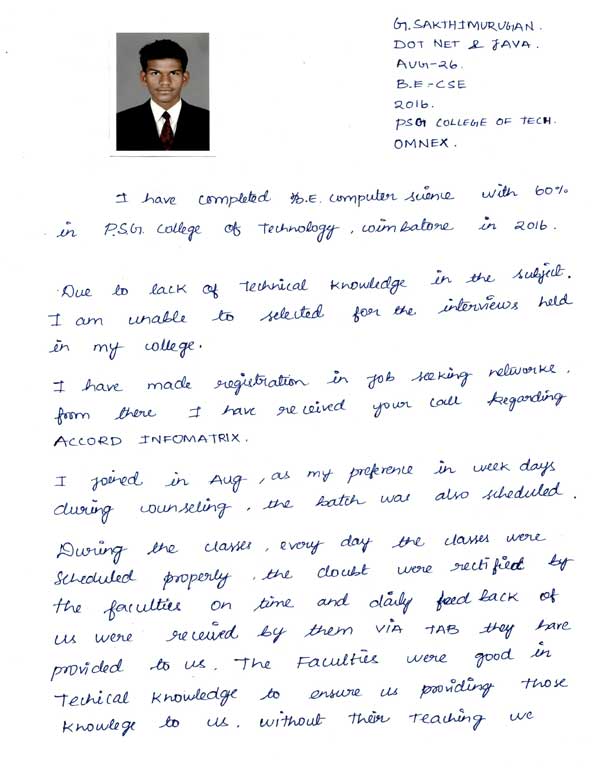 G. SAKTHIMURUGAN.
DOT NET & JAVA.
AUG-26.
B.E-CSE
2016.
PSG COLLEGE OF TECH.
OMNEX.
I have completed B.E. computer science with 60%
in P.S.G. College of Technology, coimbatore in 2016.
Due to lack of Technical knowledge in the subject.
I am unable to selected for the interviews held
in my college.
I have made registration in job seeking networke.
from there I have received your call Regarding
ACCORD INFOMATRIX.
I joined in Aug, as my preference in week days
during counseling, the batch was also scheduled.
During the classes, every day the classes were
Scheduled properly, the doubt were rectified by
the faculties on time and daily feed back of
us were received by them VIA TAB they have
provided to us. The Faculties were good in
Techical knowledge to ensure us providing those
knowlege to us. without their Teaching we